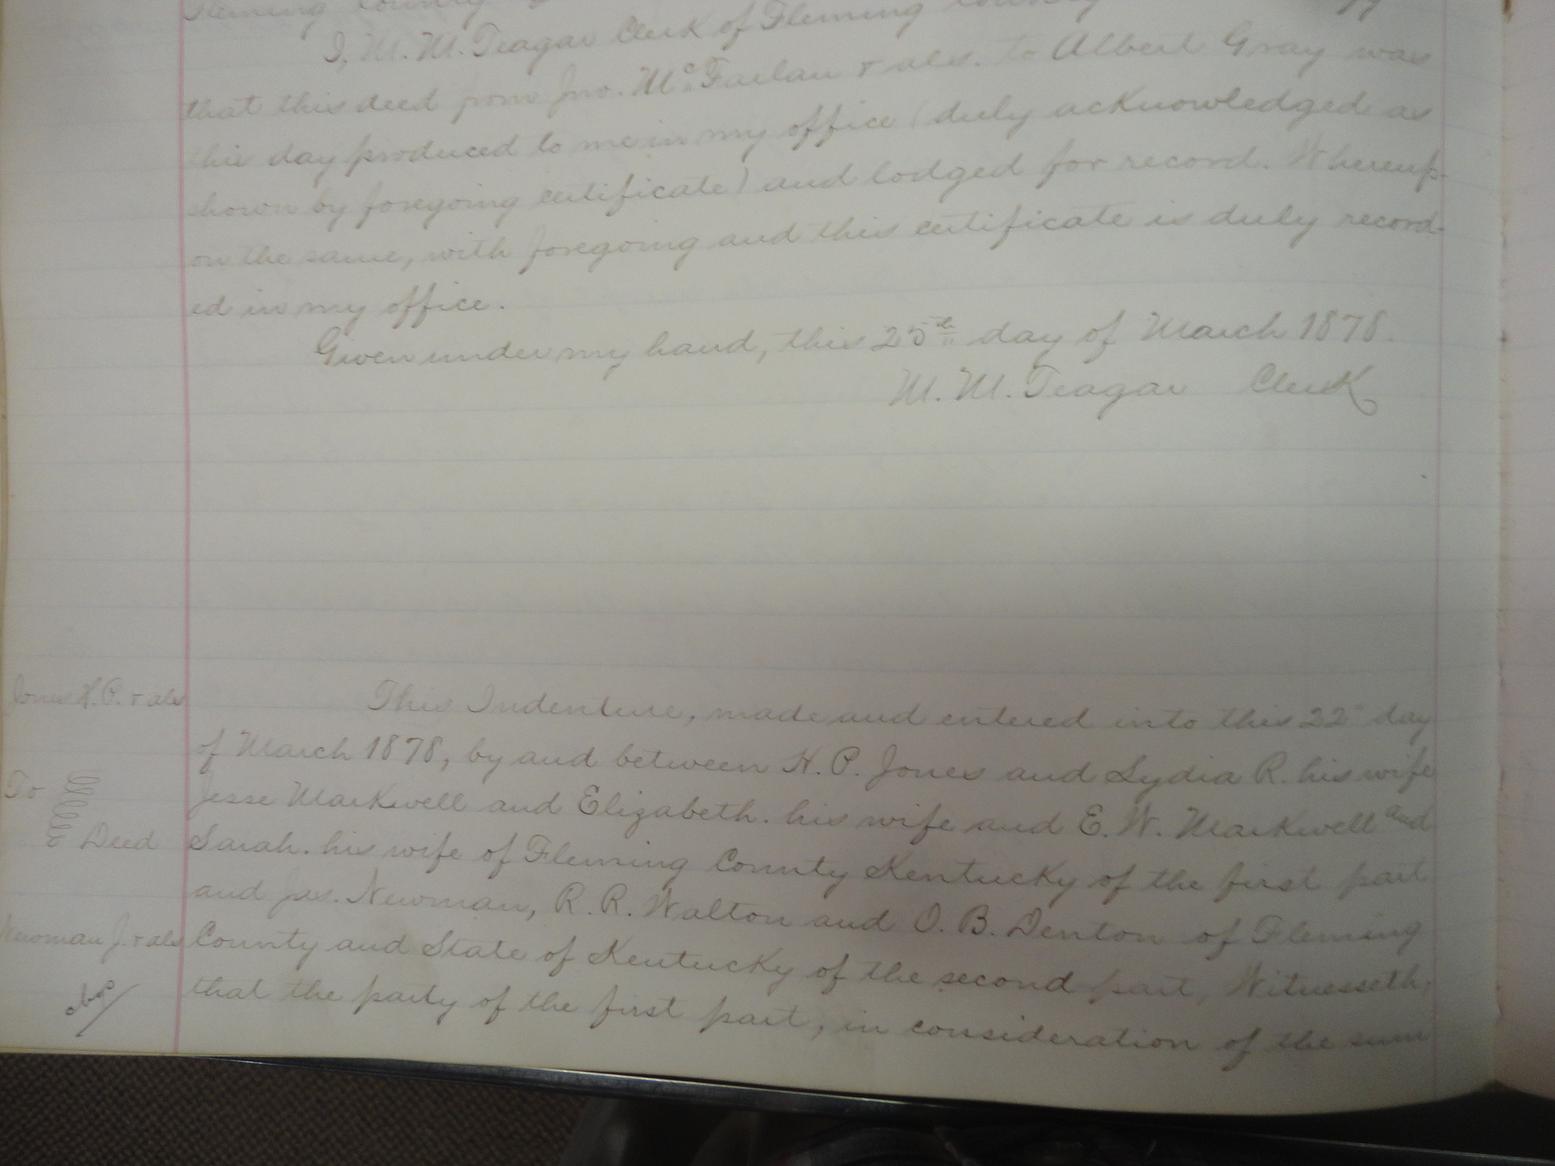 Fleming County
I, M. M. Teagar Clerk of Fleming County
that this deed from Jno. McFarlan & als. to Albert Gray was
this day produced to me in my office (duly acknowledged as
shown by foregoing certificate) and lodged for record. Whereup-
on the same, with foregoing and this certificate is duly record-
ed in my office.
Given under my hand, this 25th day of March 1878.
M. M. Teagar Clerk
Jones H. P. & als
To
Deed
Newman J. & als
This Indenture, made and entered into this 22" day
of March 1878, by and between H. P. Jones and Lydia R. his wife
Jesse Markwell and Elizabeth. his wife and E. W. Markwell and
Sarah. his wife of Fleming County Kentucky of the first part
and Jas. Newman, R. R. Walton and O. B. Denton of Fleming
County and State of Kentucky of the second part, Witnesseth,
that the party of the first part, in consideration of the sum